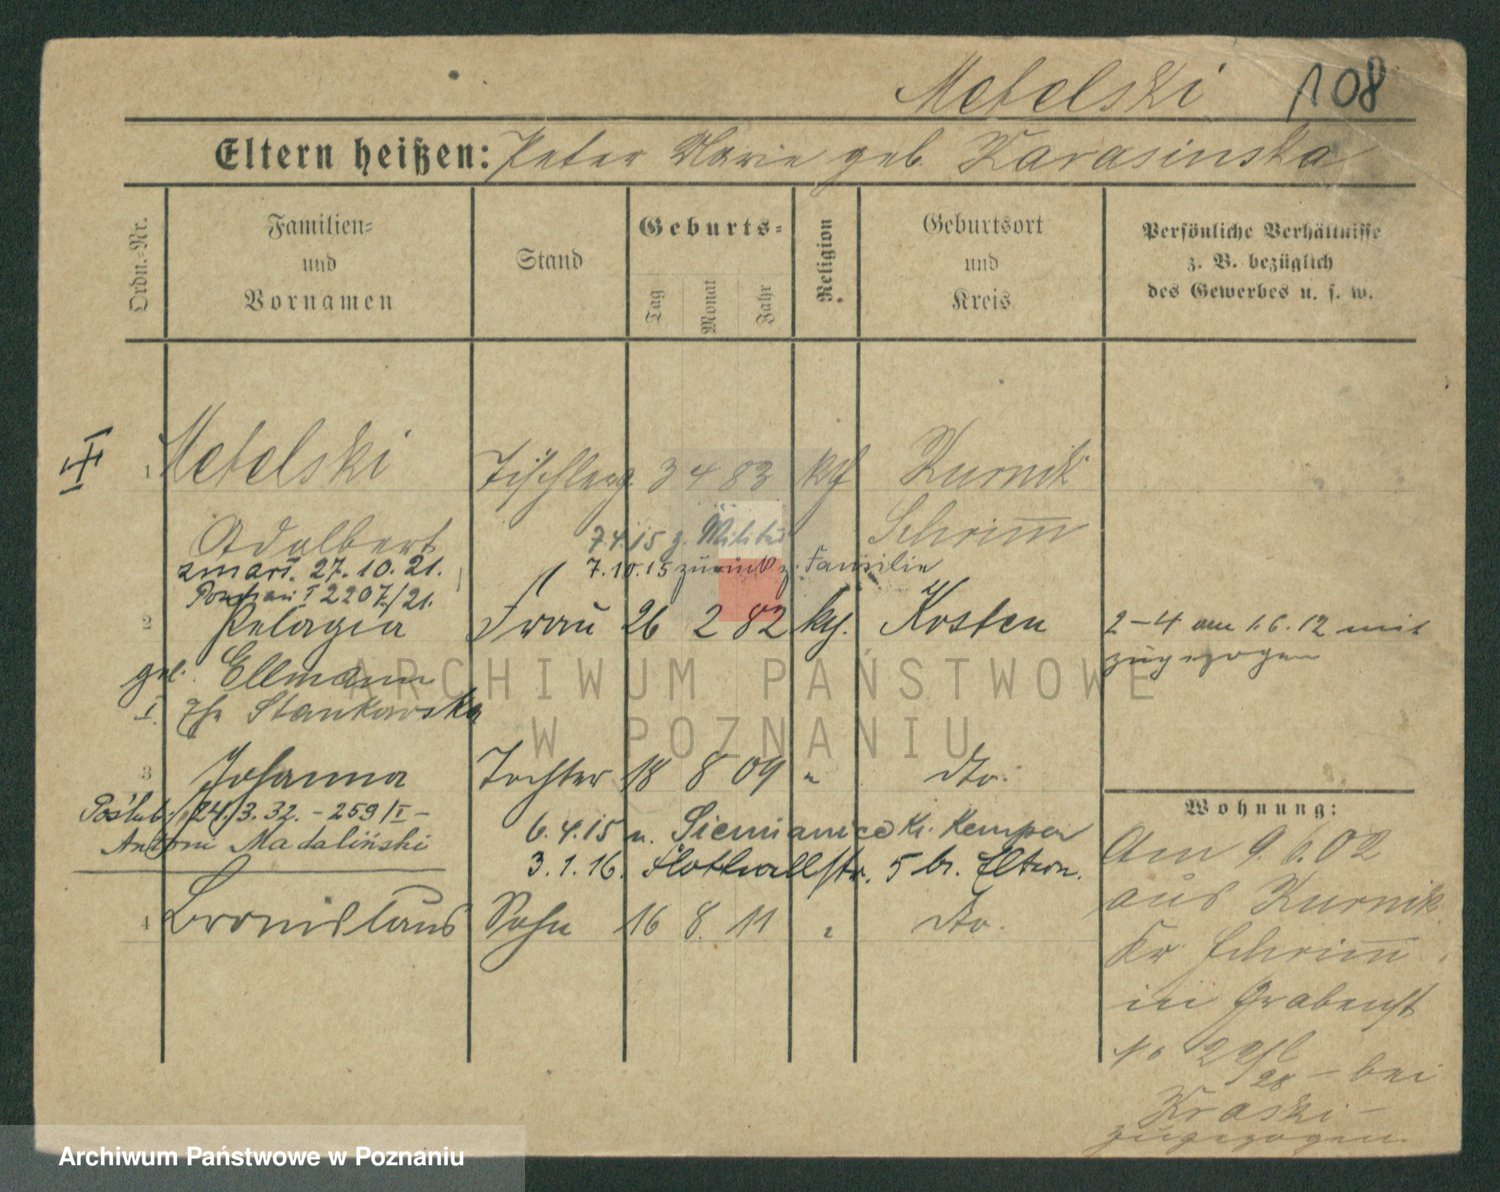 Metelski 108
Eltern heißen: Peter Marie geb. Karasinska
Ordn.-Nr.
Familien-
und
Vornamen
Stand
Geburts-
Tag
Monat
Jahr
Religion
Geburtsort
und
Kreis
Persönliche Verhältnisse
z. B. bezüglich
des Gewerbes u. s. w.
I
1 Metelski Tischlerg 3 4 83 kth Kurnik
Adalbert 7.4.15 z. Militär Schrimm
zmarł. 27.10.21. 7.10.15 zurück z. Familie
Poznań I 2207/21.
2 Pelagia Frau 26 2 82 kth. Kosten 2-4 am 1.6.12 mit
zugezogen
geb. Ellmann
I. Ehe Stankowska
3 Johanna Tochter 18 8 09 " dto.
Poślub. 24.3.32. - 259/I -
Antoni Madaliński
6.4.15 n. Siemianice Kr. Kempen
3.1.16. Flottwellstr. 5 b. Eltern.
4 Bronislaus Sohn 16 8. 11 " dto.
Wohnung:
Am 9.6.02
aus Kurnik
Kr. Schrimm
in Grabenst
No 22 28 - bei
Kraski -
zugezogen.
ARCHIWUM PAŃSTWOWE
W POZNANIU
Archiwum Państwowe w Poznaniu